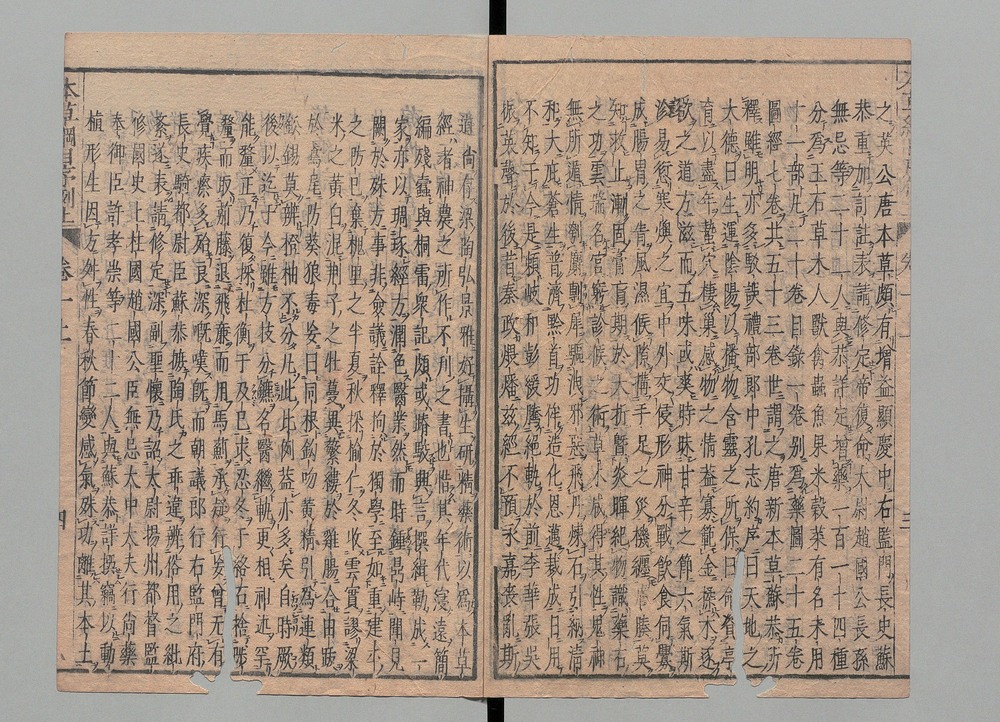 之英公唐本草頗有增益顯慶中右監門長史蘇
恭重加訂註表請修定帝復命太尉趙國公長孫
無忌等二十二人與恭詳定增藥一百一十四種
分為玉石草木人獸禽蟲魚果米穀菜有名未用
十一部凡二十卷目錄一卷別為藥圖二十五卷
圖經七卷共五十三卷世謂之唐新本草蘇恭所
釋雖明亦多駁誤禮部郎中孔志約序曰天地之
大德曰生運陰陽以播物含靈之所保曰命資亭
育以盡年蟄穴棲巢感物之情蓋寡範金揉木逐
欲之道方滋而五味或爽時昧甘辛之節六氣斯
沴易愆寒燠之宜中外交侵形神分戰飲食伺釁
成腸胃之眚風濕候隙構手足之災機纏膚腠莫
知救止漸固膏肓期於夭折暨炎暉紀物識藥石
之功雲瑞名官窮診候之術草木咸得其性鬼神
無所遁情刳麝剸犀驅洩邪惡飛丹煉石引納清
和大庇蒼生普濟黔首功侔造化恩邁裁成日用
不知于今是賴岐和彭緩騰絕軌於前李華張吳
振英聲於後昔秦政煨燔茲經不預永嘉喪亂斯
道尚存梁陶弘景雅好攝生研精藥術以為本草
經者神農之所作不刊之書也惜其年代寖遠簡
編殘蠹與桐雷眾記頗或踳駁興言撰緝勒成一
家亦以琱琢經方潤色醫業然而時鍾鼎峙聞見
闕於殊方事非僉議詮釋拘於獨學至如重建平
之防己棄槐里之半夏秋採榆仁冬收雲實謬粱
米之黃白混荊子之牡蔓異繁縷於雞腸合由跋
於鳶尾防葵狼毒妄曰同根鉤吻黃精引為連類
鉛錫莫辨橙柚不分凡此比例蓋亦多矣自時厥
後以迄于今雖方技分鑣名醫繼軌更相祖述罕
能釐正乃復採杜衡于及己求忍冬于絡石捨陟
釐而取莂藤退飛廉而用馬薊承疑行妄曾無有
覺疾瘵多殆良深慨嘆既而朝議郎行右監門府
長史騎都尉臣蘇恭摭陶氏之乖違辨俗用之紕
紊遂表請修定深副聖懷乃詔太尉揚州都督監
修國史上柱國趙國公臣無忌太中大夫行尚藥
奉御臣許孝崇等二十二人與蘇恭詳撰竊以動
植形生因方舛性春秋節變感氣殊功離其本土
本草綱目序例上
卷一上
四